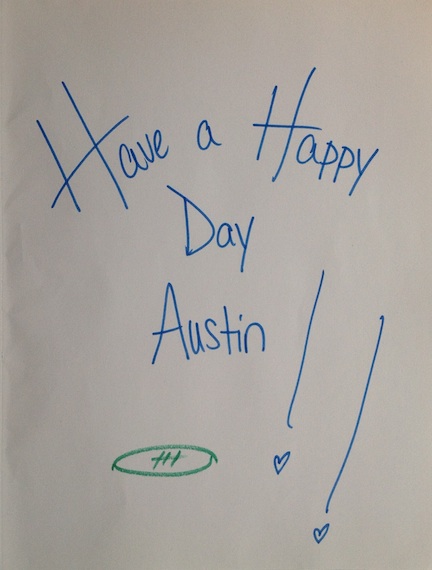 Have a Happy
Day
Austin!!